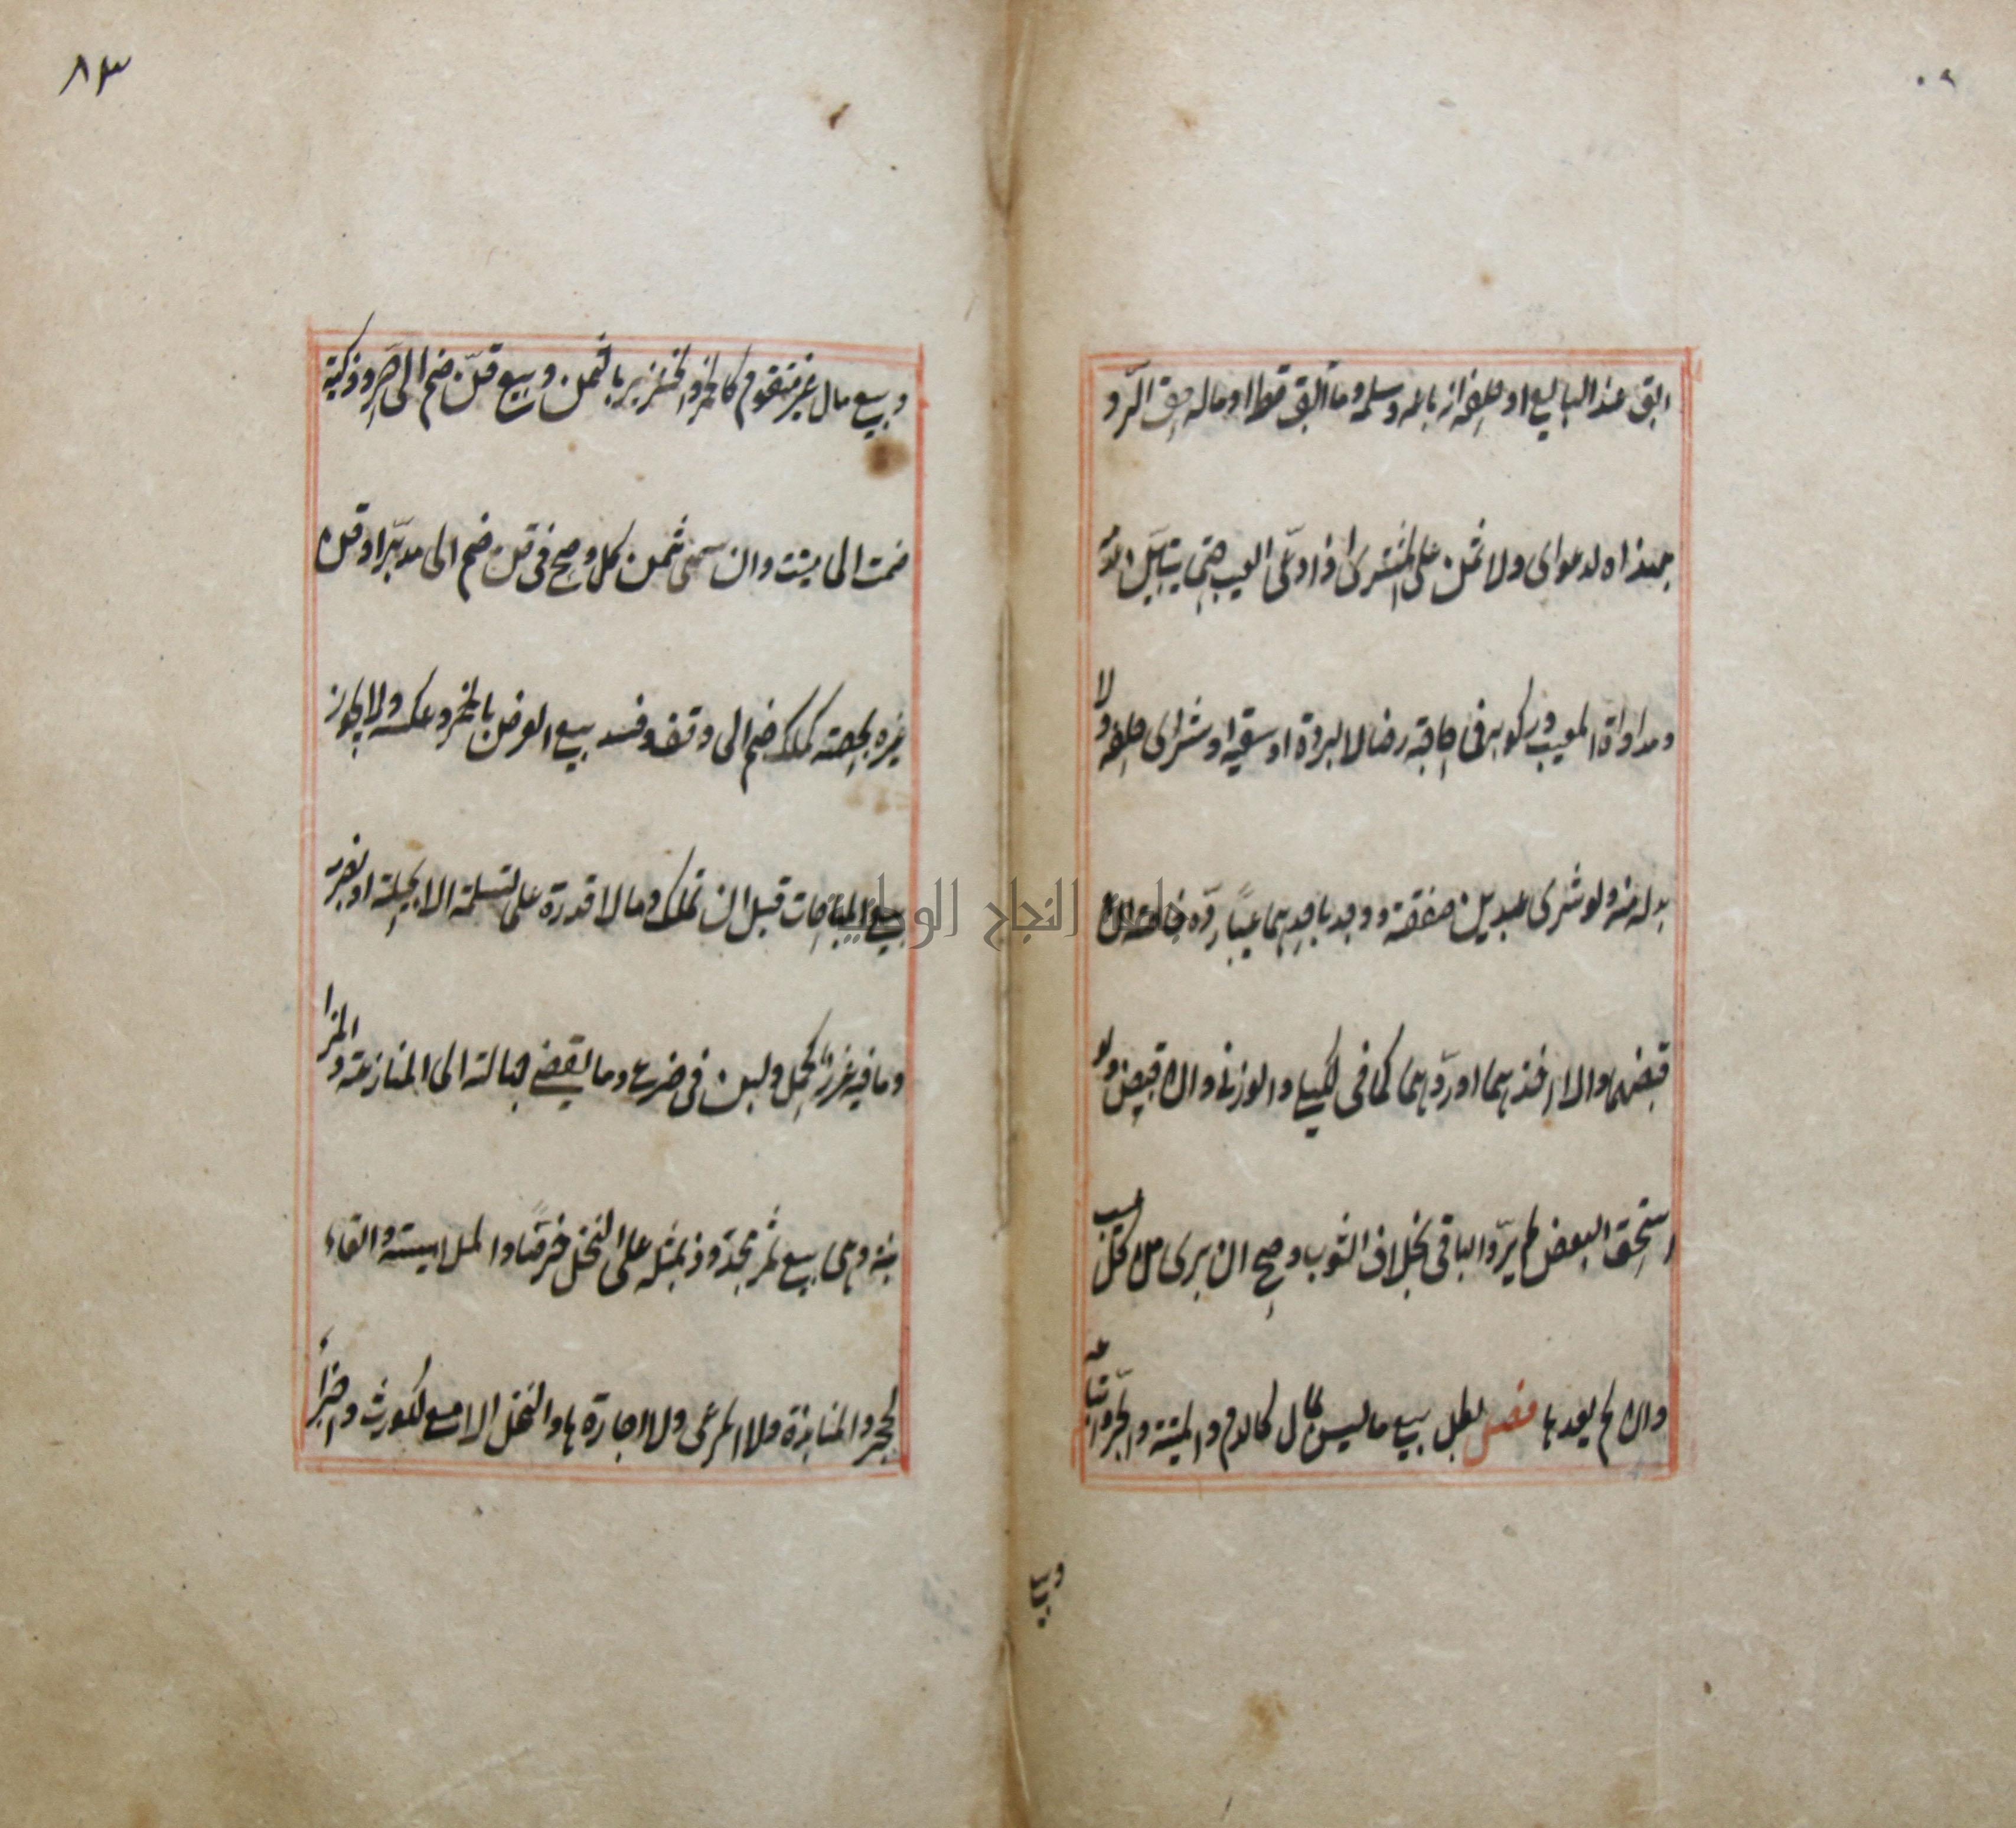 ابق عند البايع او حلفه انه باعه وسلمه وما ابق قط او ماله حق الرد
بهذاه لدعوای ولا ثمن علی المشتری اذا ادعی العيب حتی يتبين
ومداواة المعيب وركوبه فی حاجته رضا لا لرده او سقيه او شرای علفه ولا
بد له منه ولو شری عبدين صفقة ووجد باحدهما عيبا رده خاصة ان
قبضهما والا اخذهما او ردهما كما فی الكيلی والوزنی وان قبض ولو
استحق البعض لم يرد الباقی بخلاف الثوب وصح ان بری من كل عيب
وان لم يعدها فصل بطل بيع ما ليس بمال كالدم والميتة والحر
وبيع
٨٣
وبيع مال غير متقوم كالخمر والخنزير بالثمن وبيع قن ضم الی حر وذكية
ضمت الی ميتة وان سمی ثمن كل وصح فی قن ضم الی مدبر او قن
غيره بحصته كملك ضم الی وقف وفسد بيع العرض بالخمر وعكسه ولا يجوز
بيع المباحات قبل ان تملك وما لا قدرة علی تسلمه الا بحيلة او بضربة
وما فيه غرر كحمل ولبن فی ضرع وما يفضی جهالته الی المنازعة والمزا
بنة وهی بيع ثمر مجذوذ بمثله علی النخل خرصا والملامسة والقاء
الحجر والمنابذة ولا المرعی ولا اجارتها والنحل الا مع الكورات واجزاء
جامعة النجاح الوطنية